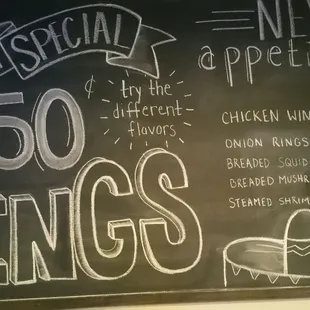 SPECIAL
50 ¢
try the
different
flavors
NGS
NE
appeti
CHICKEN WIN
ONION RINGS
BREADED SQUID
BREADED MUSHR
STEAMED SHRIM